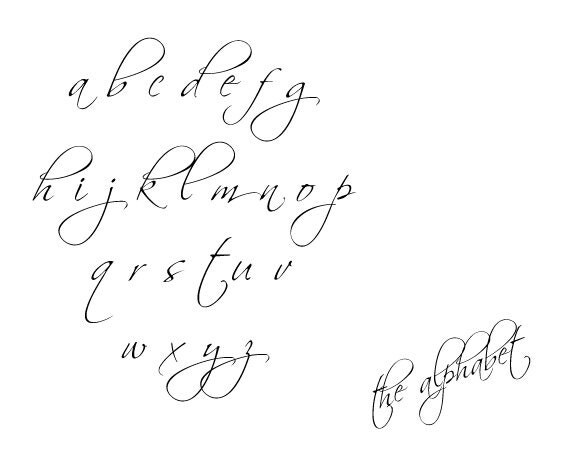 a b c d e f g
h i j k l m n o p
q r s t u v
w x y z
the alphabet